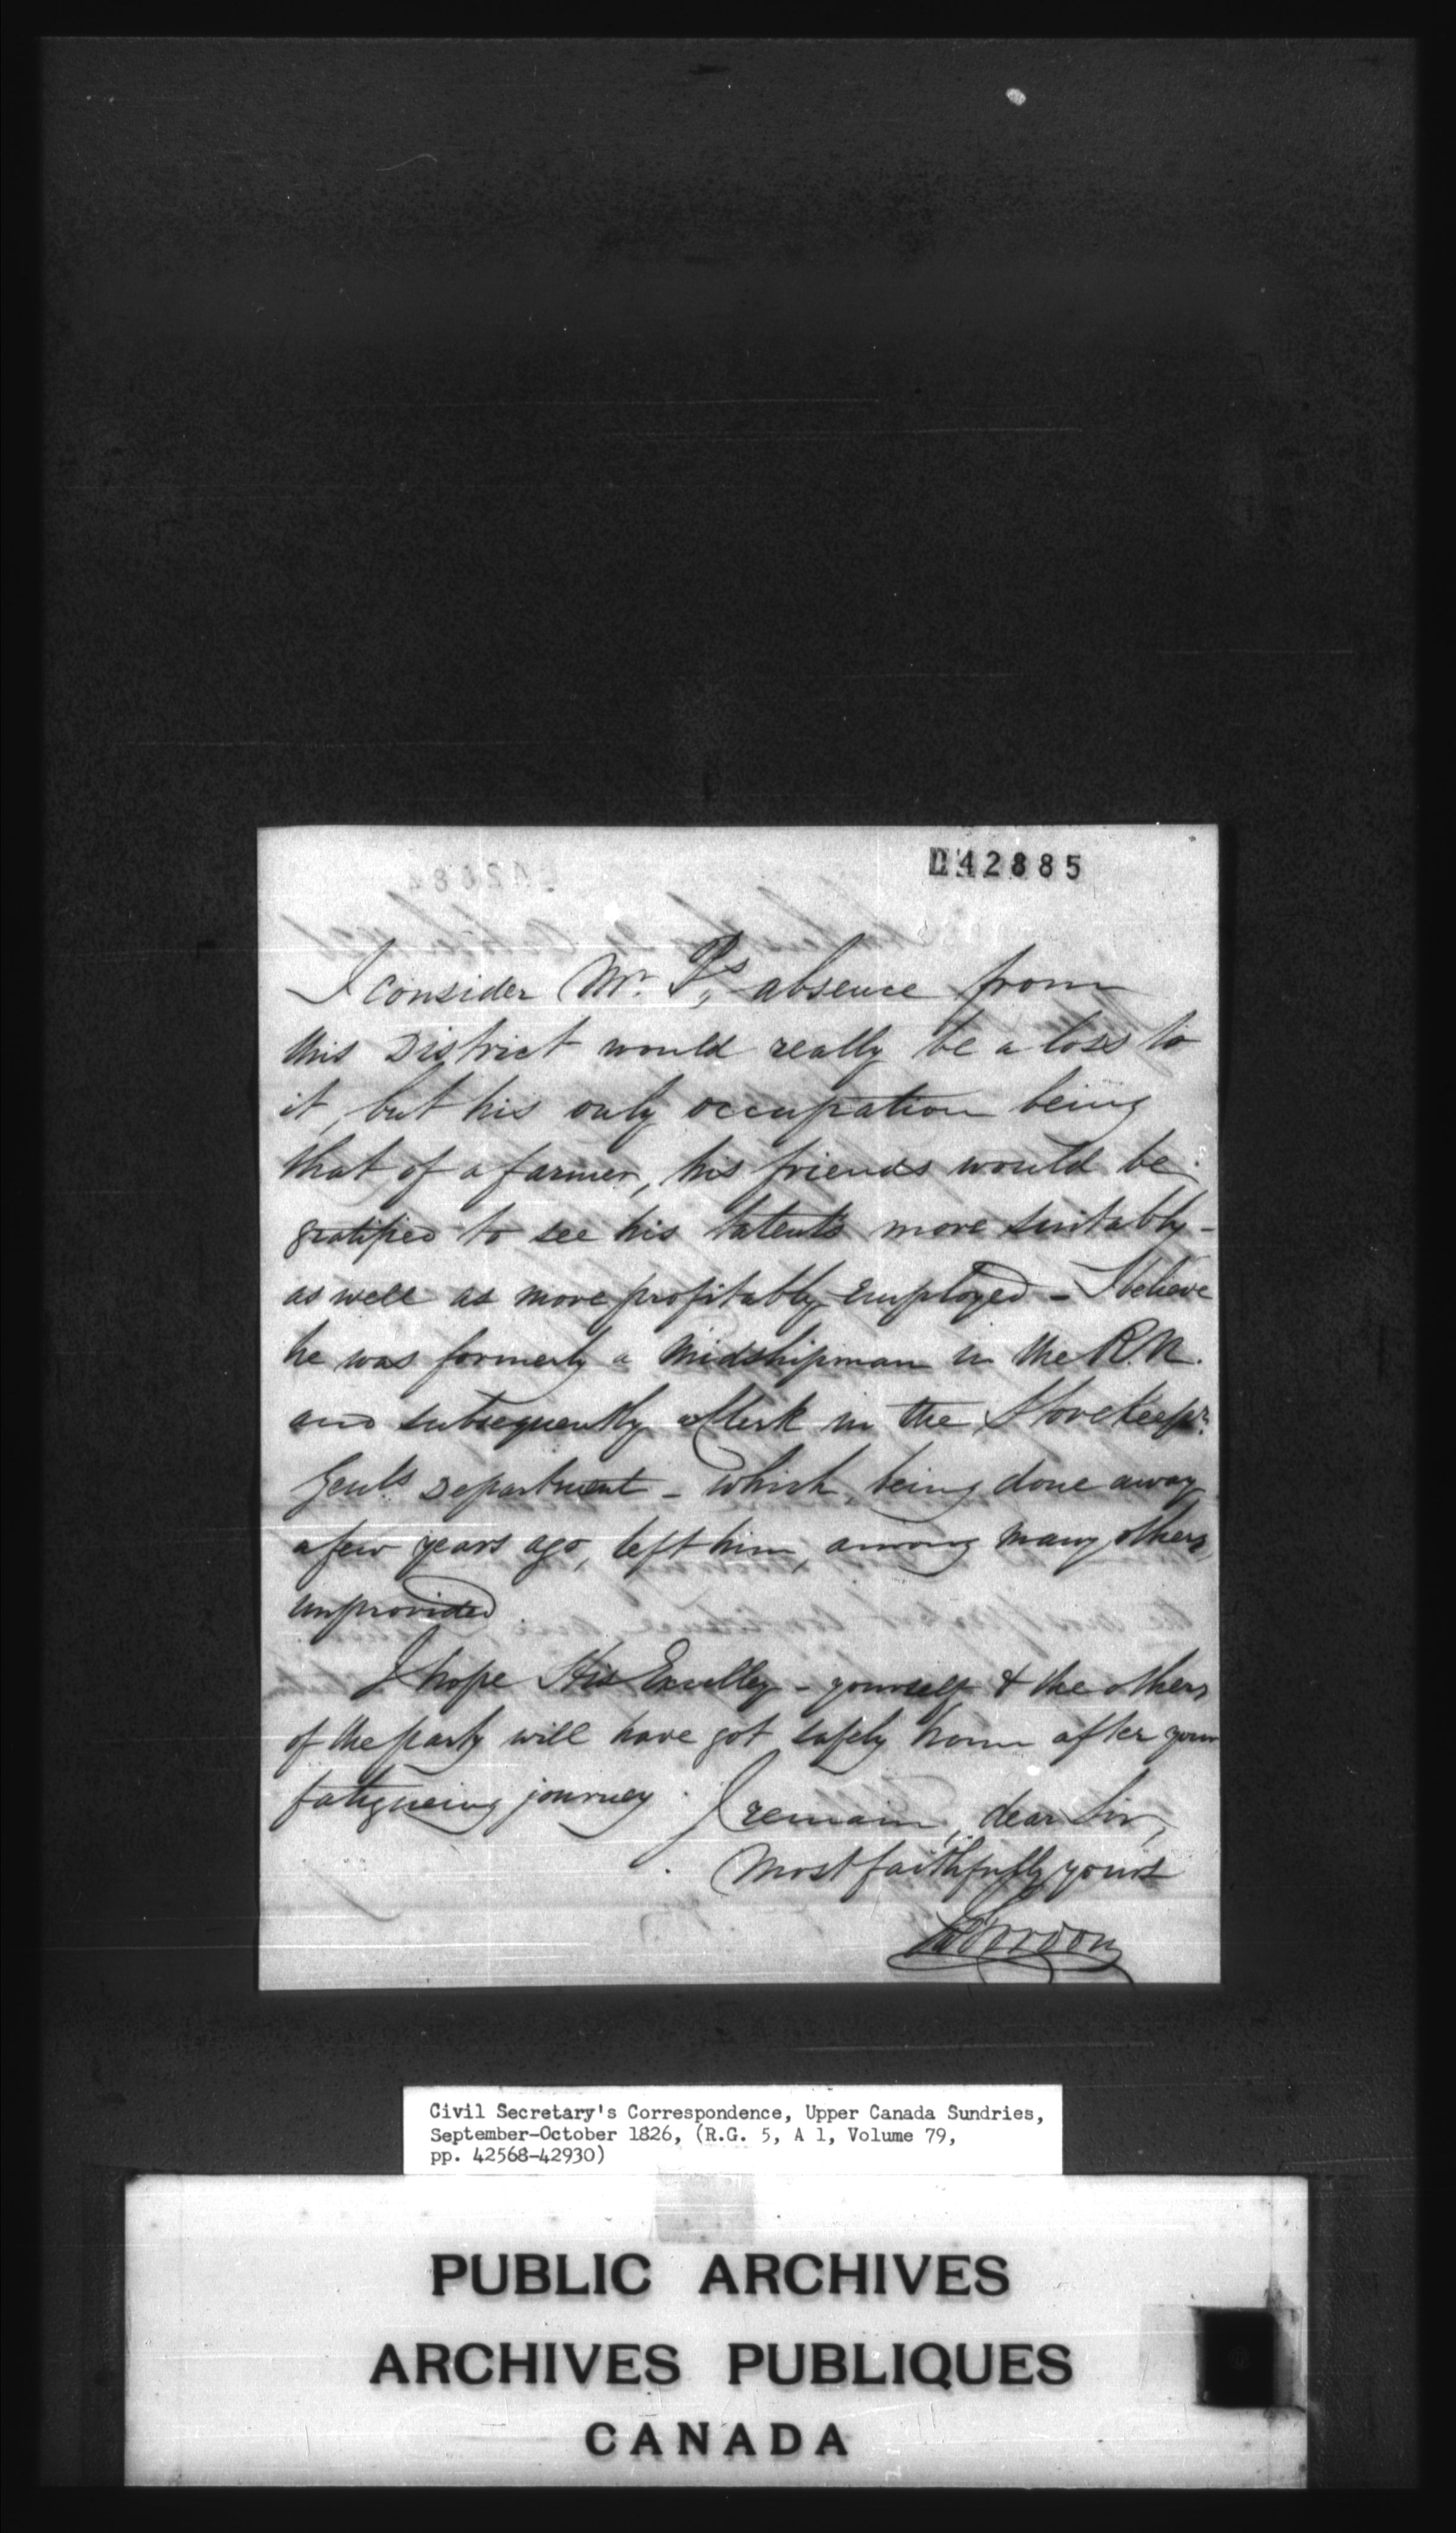 42885
I consider Mr. P's, absence from
this District would really be a loss to
it, but his only occupation being
that of a farmer, his friends would be
gratified to see his talents more suitably -
as well as more profitably employed - I believe
he was formerly a Midshipman in the R.N.
and subsequently a Clerk in the Storekeepr.
Genls Department - which being done away
a few years ago, left him, among many others,
unprovided
I hope His Excelley - yourself & the others
of the party will have got safely home after your
fatigueing journey. I remain, dear Sir,
Most faithfully yours
Gordon
Civil Secretary's Correspondence, Upper Canada Sundries,
September-October 1826, (R.G. 5, A 1, Volume 79,
pp. 42568-42930)
PUBLIC ARCHIVES
ARCHIVES PUBLIQUES
CANADA